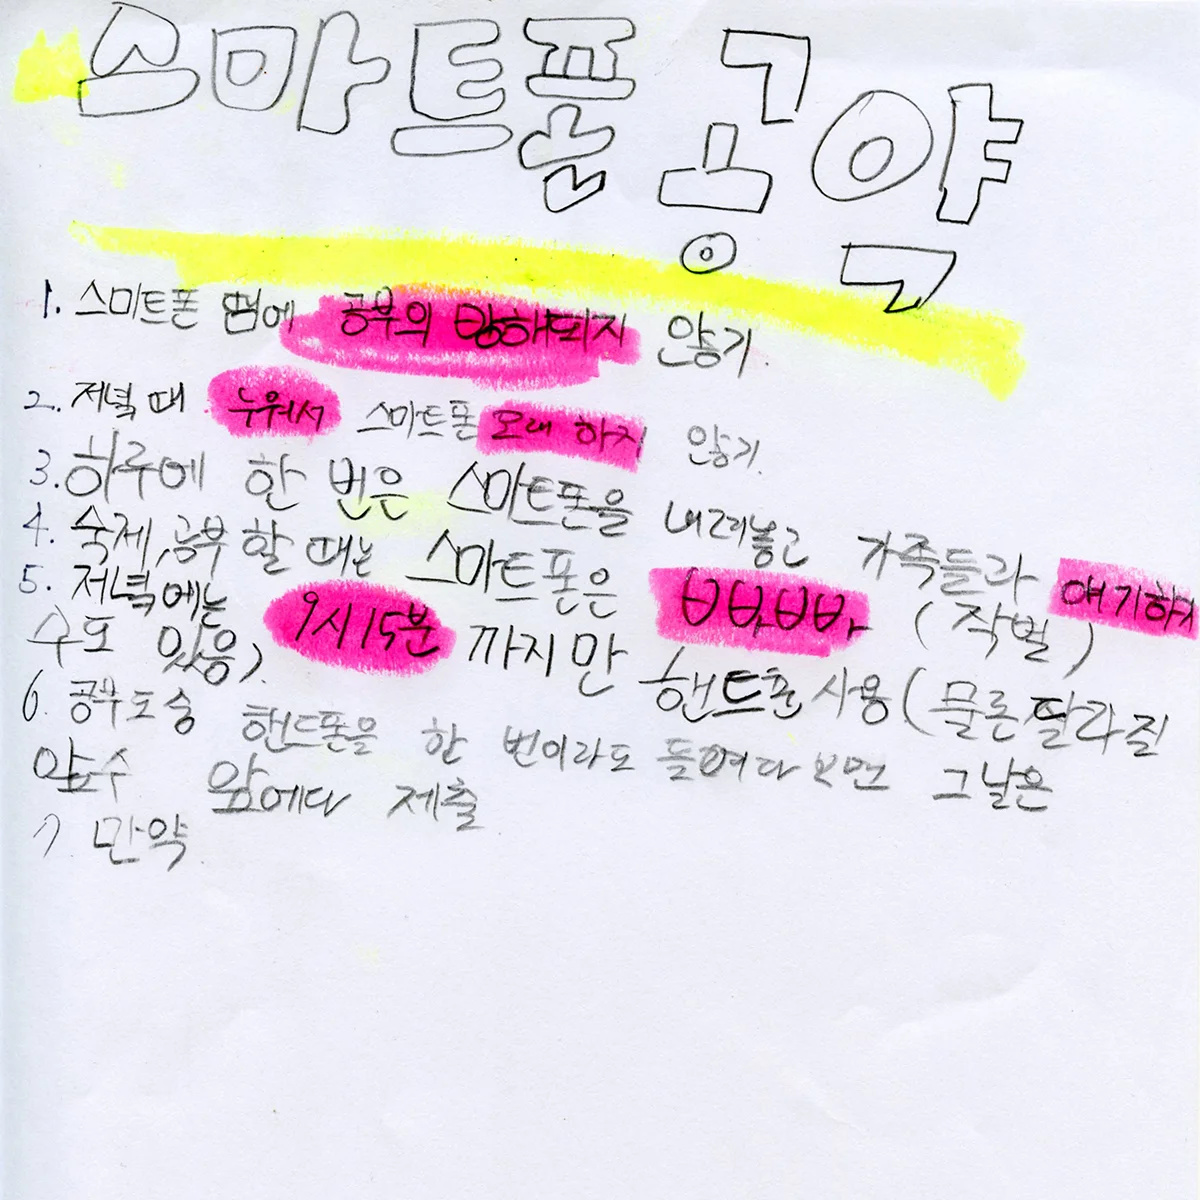 스마트폰 공약
1. 스마트폰 땜에 공부의 방해되지 않기
2. 저녁 때 누워서 스마트폰 오래 하지 않기.
3. 하루에 한 번은 스마트폰을 내려놓고 가족들과 얘기하기
4. 숙제, 공부 할 때는 스마트폰은 빠빠. (작별)
5. 저녁에는 9시 15분 까지만 핸드폰 사용 (물론 달라질
수도 있음).
6. 공부 도중 핸드폰을 한 번이라도 들여다 보면 그날은
압수 앞에다 제출
7 만약